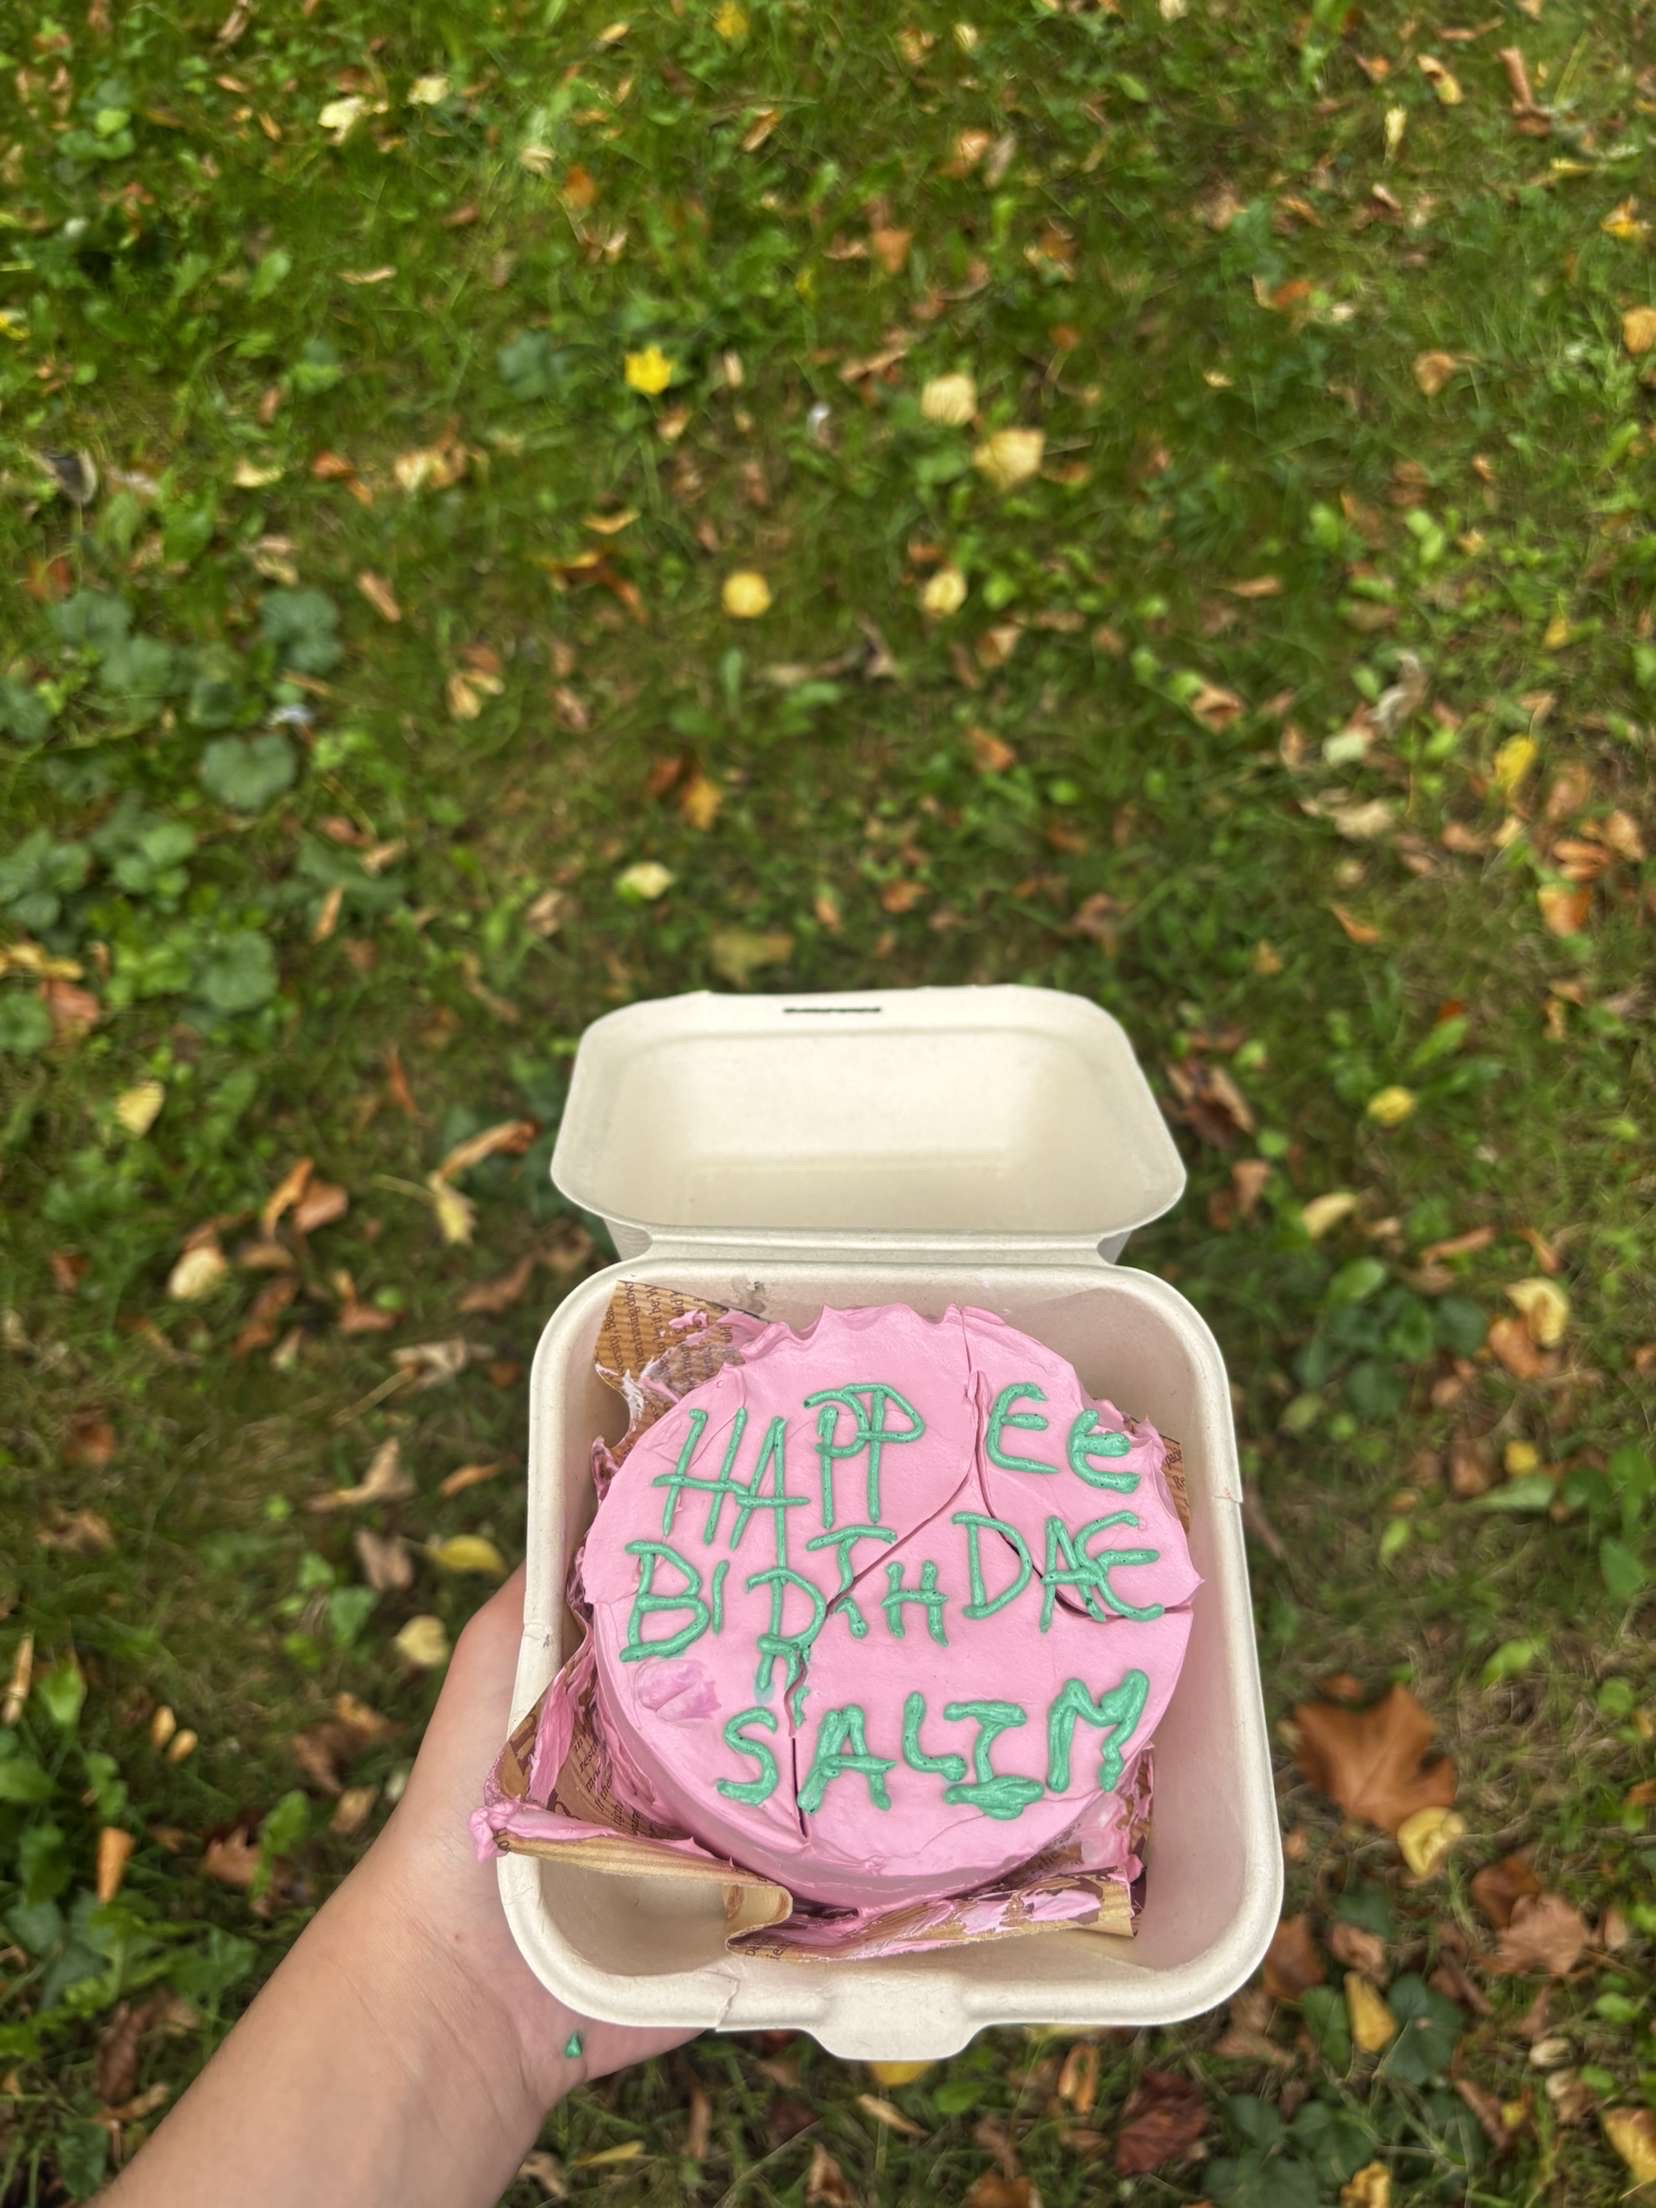 HAPP EE
BIRTHDAE
SALIM